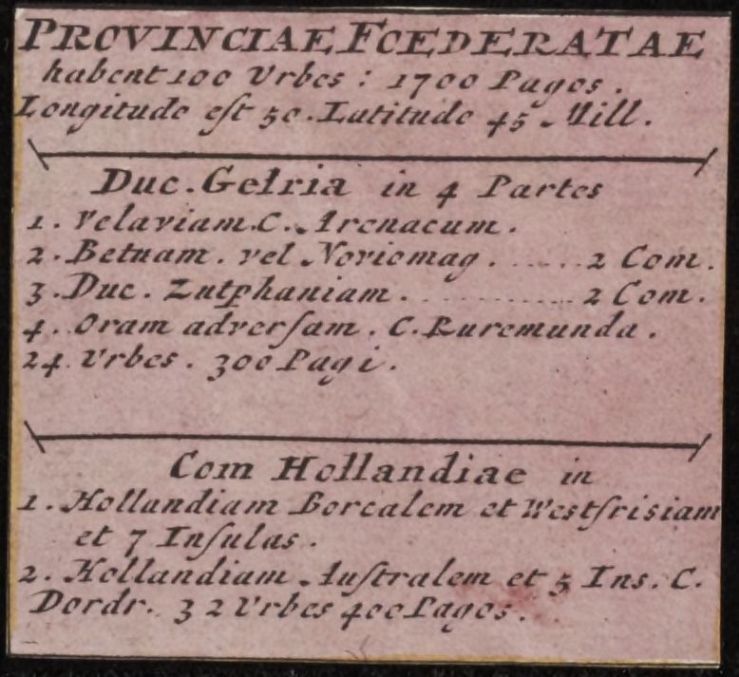 PROVINCIAE FOEDERATAE
habent 100 Urbes : 1700 Pagos .
Longitudo eſt 50 . Latitudo 45 . Mill .
Duc . Gelria in 4 Partes
1 . Velaviam . C . Arenacum .
2 . Betuam . vel Noviomag . ...... 2 Com .
3 . Duc . Zutphaniam . ............ 2 Com .
4 . Oram adverſam . C . Ruremunda .
24 . Urbes . 300 Pagi .
Com Hollandiae in
1 . Hollandiam Borealem et Westfrisiam
et 7 Inſulas .
2 . Hollandiam Auſtralem et 5 Ins . C .
Dordr . 32 Urbes 400 Pagos .